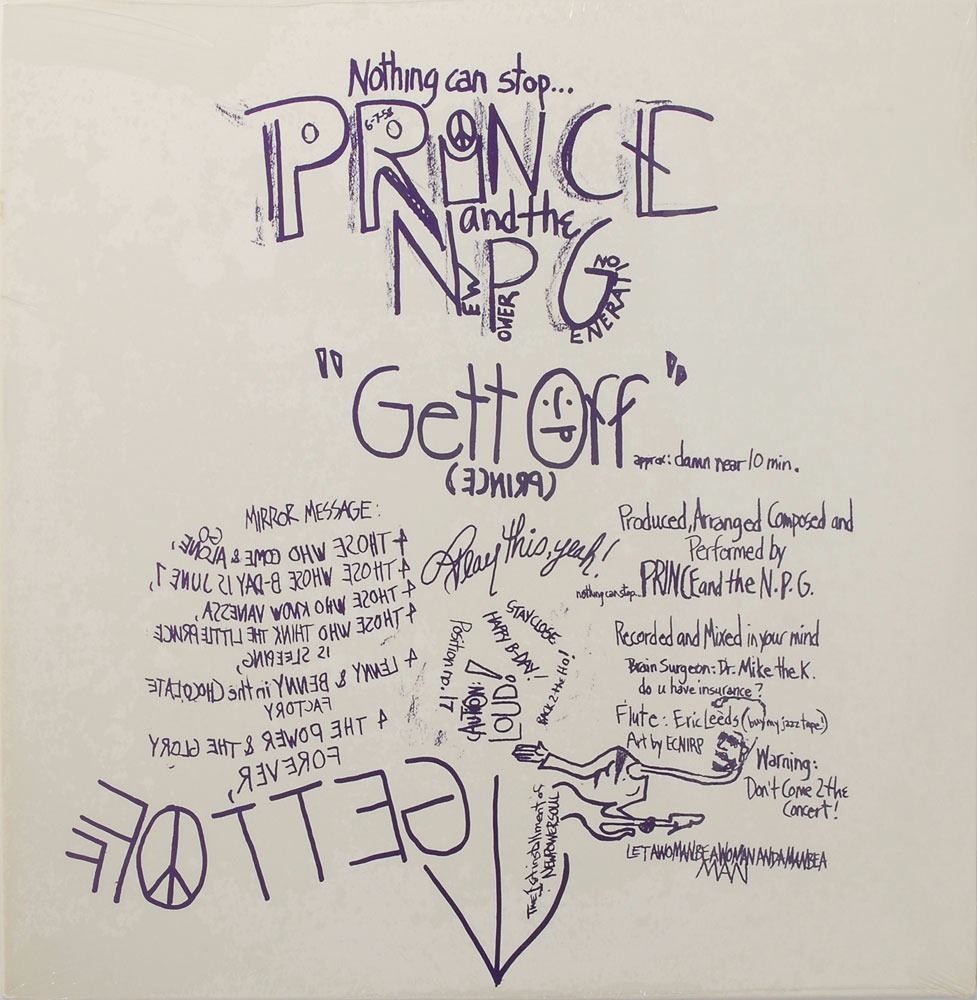 Nothing can stop...
PRiNCE
6-7-58
and the
NPG
NEW POWER GENERATION
"Gett Off"
approx: damn near 10 min.
(PRINCE)
MIRROR MESSAGE:
4 THOSE WHO COME & GO ALONE,
4 THOSE WHOSE B-DAY IS JUNE 7,
4 THOSE WHO KNOW VANESSA,
4 THOSE WHO THINK THE LITTLE PRINCE
IS SLEEPING,
4 LENNY & BENNY in the CHOCOLATE
FACTORY
4 THE POWER & THE GLORY
FOREVER,
GETT OFF
Play this, yeah!
STAY CLOSE
HAPPY B-DAY!
Position no. 17
CAUTION:
LOUD!
BACK 2 the Ho!
The 1st installment of
NEWPOWERSOUL
Produced, Arranged Composed and
Performed by
nothing can stop... PRINCE and the N.P.G.
Recorded and Mixed in your mind
Brain Surgeon: Dr. Mike the K.
do u have insurance?
Flute: Eric Leeds (buy my jazz tape!)
Art by ECNIRP
Warning:
Don't Come 2 the
Concert!
LETAWOMANBEAWOMANANDAMANBEA
MAN